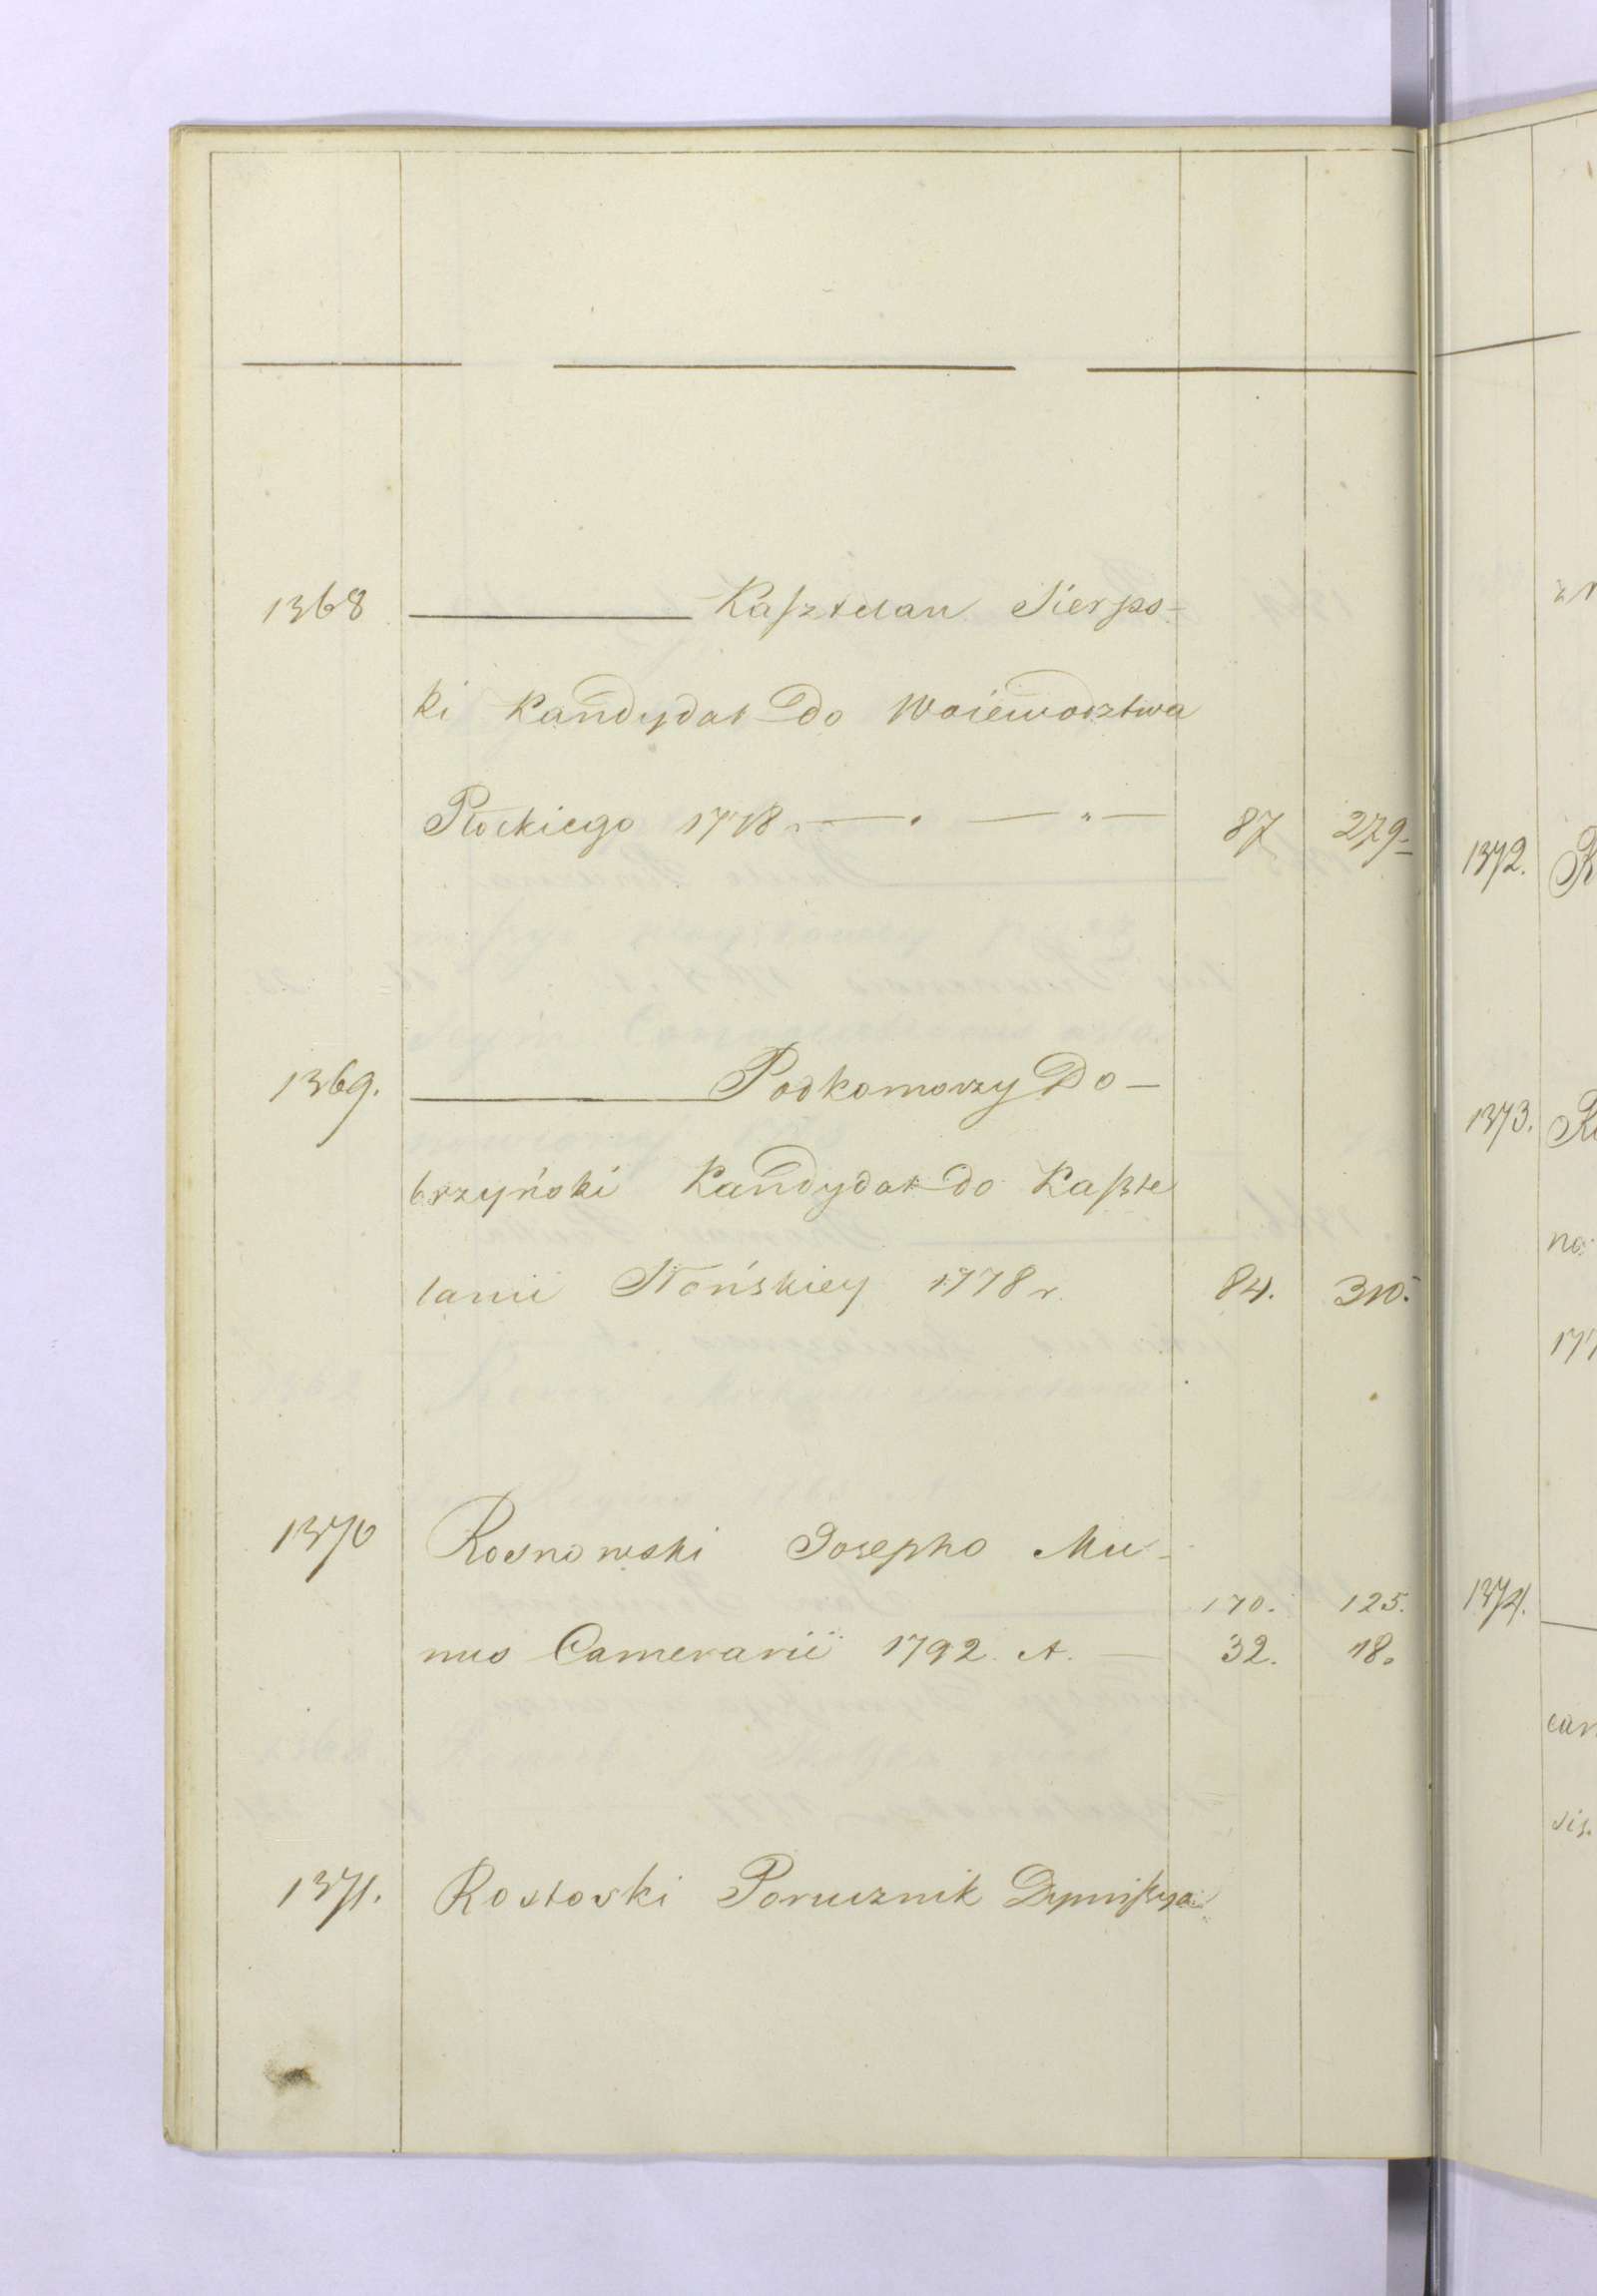 1368 ——— Kasztelan Sierps-
ki Kandydat Do Woiewodztwa
Płockiego 1778 — . — " — 87 279.
1369. ——— Podkomorzy Do-
brzyński Kandydat do Kaszte
lanii Słońskiey 1778 r. 84. 310.
1370 Rosnowski Josepho Mu-
170. 125.
nus Camerarii 1792. A. — 32. 18.
1371. Rostoski Porucznik Dymissya
1372. R
1373. R
na
177
1374.
can
sis.